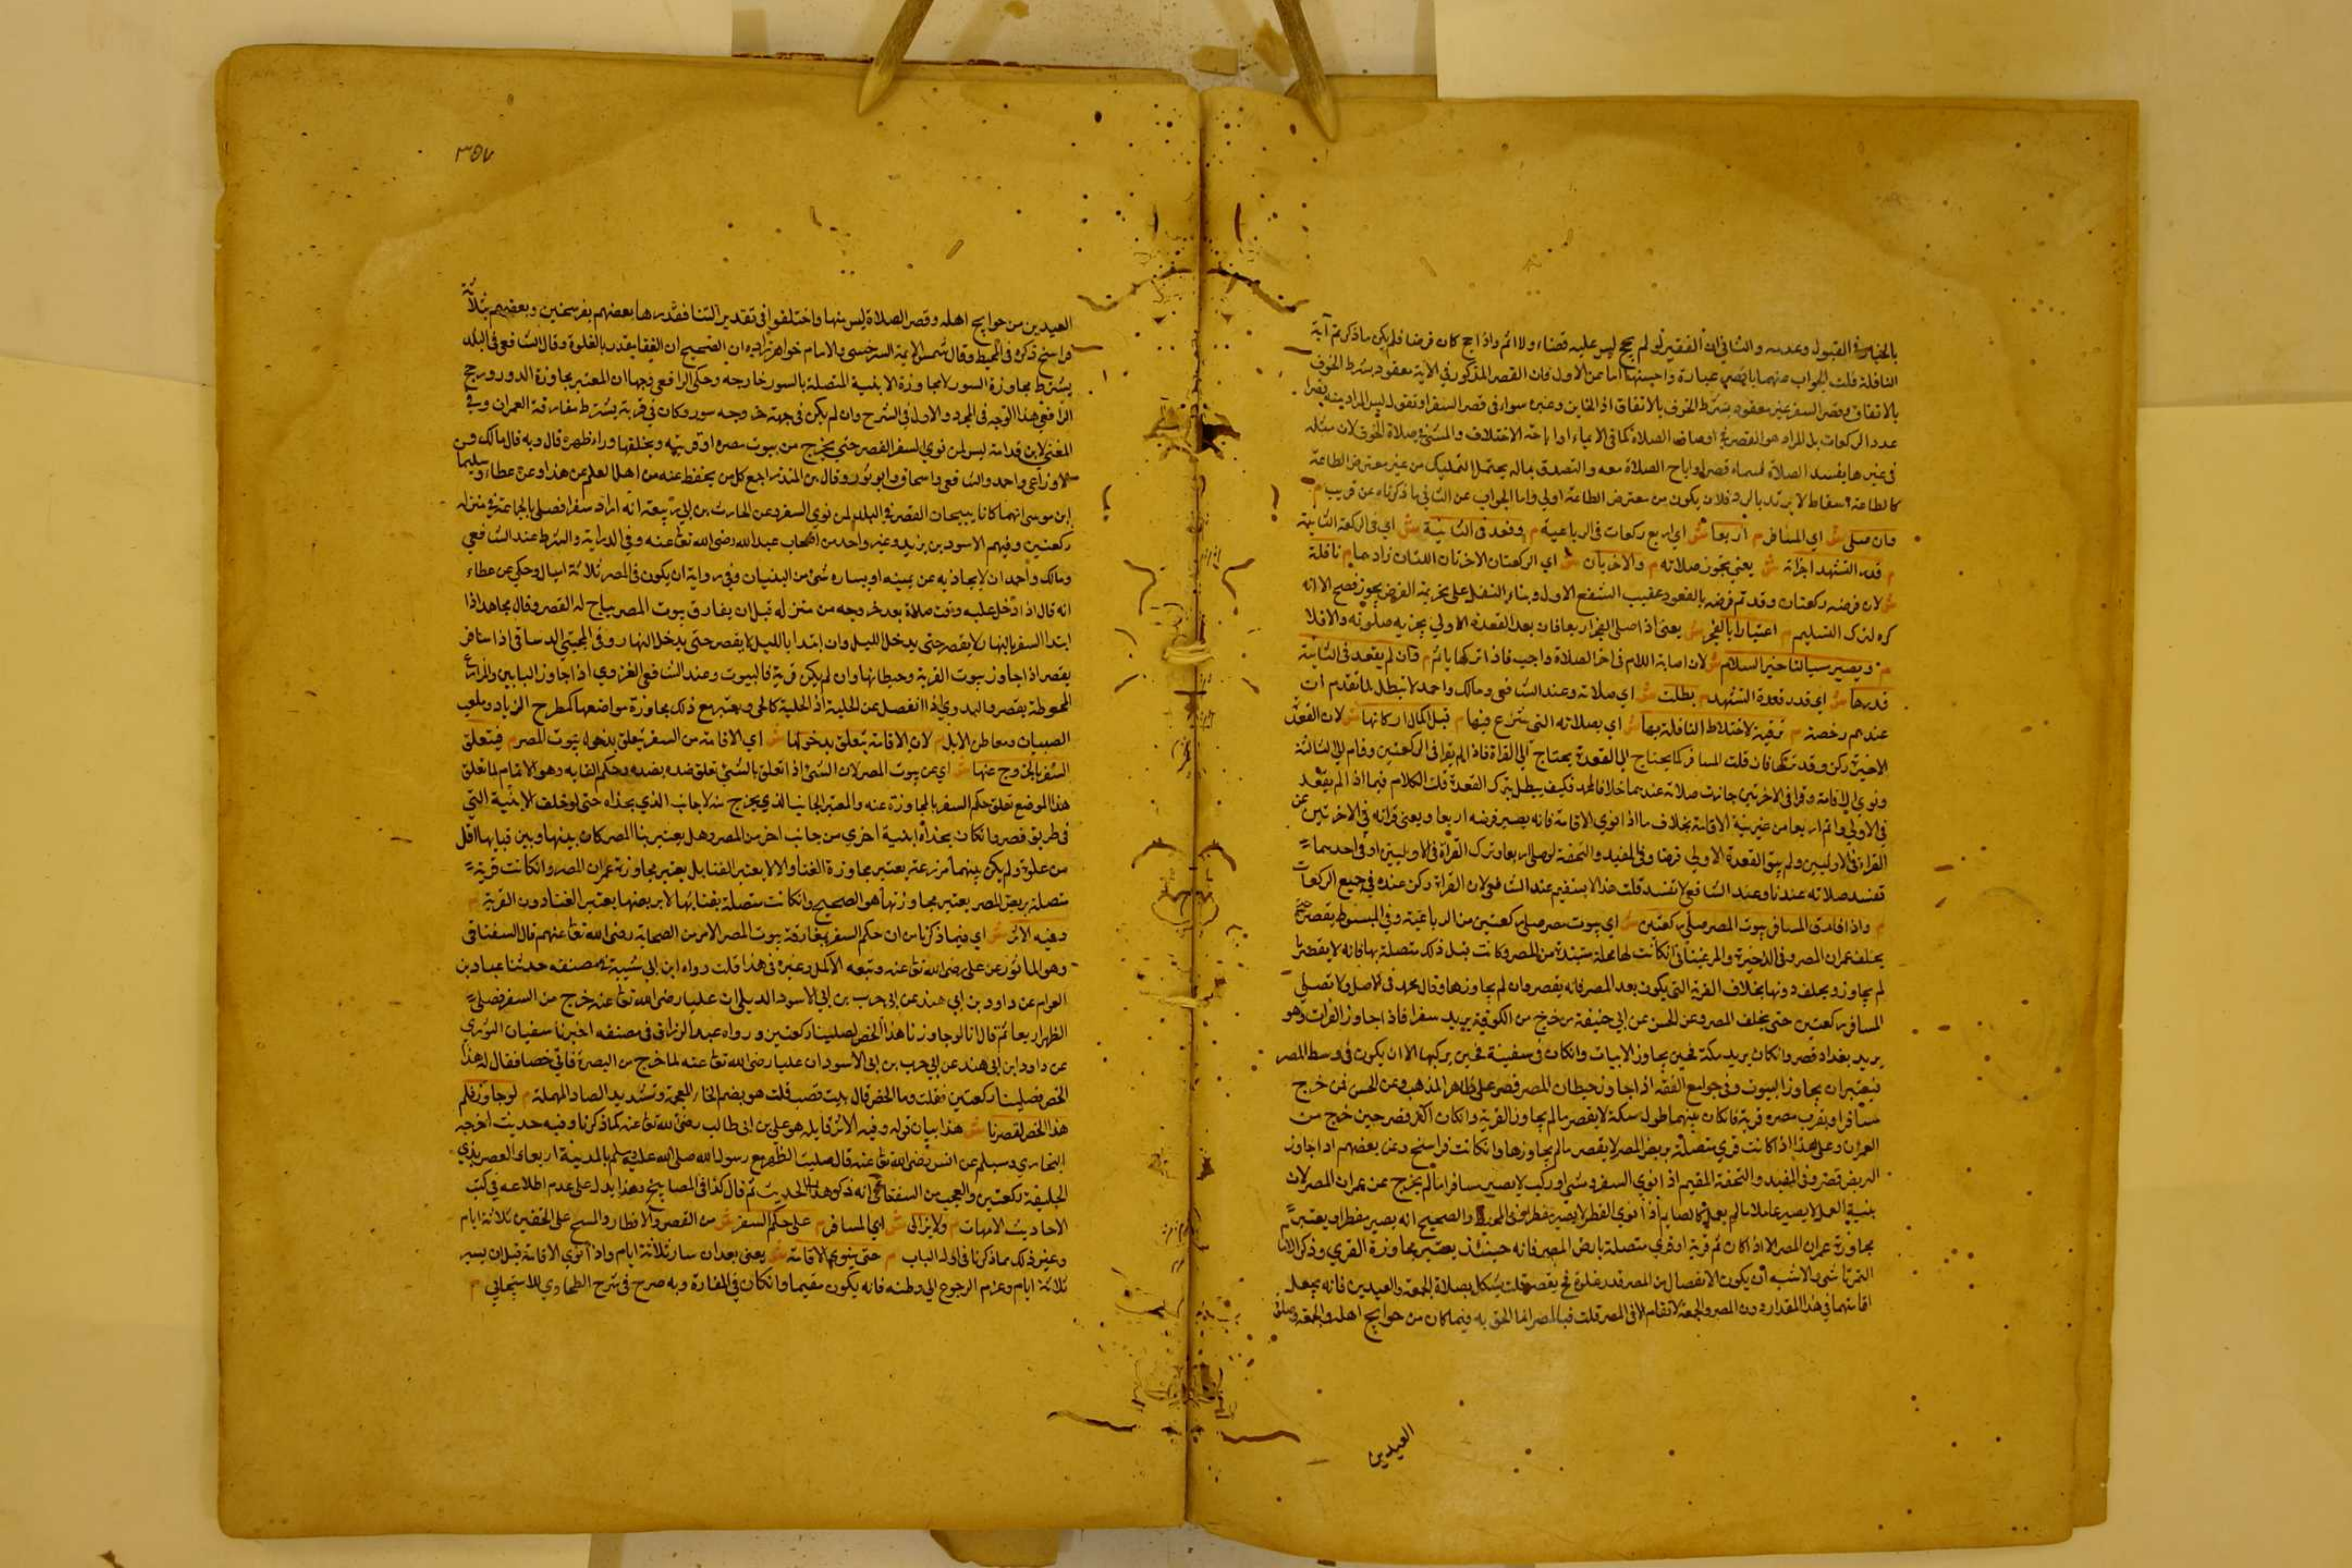 بالخيار في القبول وعدمه والثاني ان الفقير لو لم يحج ليس عليه قضاء ولا اثم واذا حج كان فرضا فلم يكن ما ذكرتم آية
النافلة قلت الجواب عنهما باقصر عبارة واحسنها اما عن الاول فان القصر المذكور في الآية معقود بشرط الخوف
بالاتفاق وقصر السفر غير معقود بشرط الخوف بالاتفاق اذ الخائن وغيره سواء في قصر السفر او نقول ليس المراد منه قصر
عدد الركعات بل المراد هو القصر في اوصاف الصلاة كما في الايماء او اباحة الاختلاف والمشي في صلاة الخوف لان مثله
في غيرها يفسد الصلاة فسماه قصرا واباح الصلاة معه والتصدق بما لا يحتمل التمليك من غير مفترض الطاعة
كالطاعة اسقاط لا يرتد بالرد فلان يكون من مفترض الطاعة اولى واما الجواب عن الثاني ما ذكرناه عن قريب م
وان صلى ش اي المسافر م اربعا ش اي اربع ركعات في الرباعية م وقعد في الثانية ش اي في الركعة الثانية
م قدر التشهد اجزأته ش يعني تجوز صلاته م والاخريان ش اي الركعتان الاخرتان اللتان زادهما م نافلة
ش لان فرضه ركعتان وقد تم فرضه بالقعود عقيب الشفع الاول وبناء النفل على تحريمة الفرض يجوز فصح الا انه
كره لترك التسليم م اعتبارا بالفجر ش يعني اذا صلى الفجر اربعا فان بعد القعدة الاولى يجزيه صلوته والا فلا
م ويصير مسيأ لتأخير السلام ش لان اصابة السلام في اخر الصلاة واجب فاذا تركها ياثم م وان لم يقعد في الثانية
قدرها ش اي قدر قعدة التشهد م بطلت ش اي صلاته وعند الشافعي ومالك واحمد لا تبطل لما تقدم ان
عندهم رخصة م ترفية لاختلاط النافلة بها ش اي بصلاته التي شرع فيها م قبل اكمال اركانها ش لان القعدة
الاخيرة ركن وقد تركها فان قلت المسافر كما يحتاج الى القعدة يحتاج الى القراءة فاذا لم يقرا في الركعتين وقام الى الثالثة
ونوى الاقامة وقرا في الاخرتين جازت صلاته عندهما خلافا لمحمد فكيف يبطل بترك القعدة قلت الكلام فيما اذا لم يقعد
في الاولى واتم اربعا من غير نية الاقامة بخلاف ما اذا نوى الاقامة فانه يصير فرضه اربعا ويعني قرائه في الاخرتين عن
القراءة في الاوليين ولم يبق القعدة الاولى فرضا وفي المفيد والتحفة لو صلى اربعا وترك القراءة في الاوليين او في احديهما
تفسد صلاته عندنا وعند الشافعي لا تفسد قلت هذا لا يستقيم عند الشافعي لان القراءة ركن عنده في جميع الركعات
م واذا فارق المسافر بيوت المصر صلى ركعتين ش اي بيوت مصره صلى ركعتين من الرباعية وفي المبسوط يقصر حين
يخلف عمران المصر وفي الذخيرة والمرغيناني ان كانت لها محلة منتبذة من المصر وكانت قبل ذلك متصلة بها فانه لا يقصر ما
لم يجاوزها ويخلف دونها بخلاف القرية التي يكون بعد المصر فانه يقصر وان لم يجاوزها وقال محمد في الاصل ولا تصلي
المسافر ركعتين حتى يخلف المصر وعن الحسن عن ابي حنيفة من خرج من الكوفة يريد سفرا فاذا جاوز الفرات وهو
يريد بغداد قصر وان كان يريد مكة فحين يجاوز الابيات وان كان في سفينة فحين يركبها الا ان يكون في وسط المصر
فيعتبر ان يجاوز البيوت وفي جوامع الفقه اذا جاوز حيطان المصر قصر على ظاهر المذهب وعن الحسن من خرج
مسافرا وبقرب مصره قرية فان كان بينهما طول سكة لا يقصر ما لم يجاوز القرية وان كان اكثر قصر حين خرج من
العمران وعلى هذا اذا كانت قرى متصلة بربض المصر لا يقصر ما لم يجاوزها وان كانت فراسخ وعن بعضهم اذا جاوز
الربض قصر وفي المفيد والتحفة المقيم اذا نوى السفر ومشى او ركب لا يصير مسافرا ما لم يخرج عن عمران المصر لان
بنية العمل لا يصير عاملا ما لم يعمل كالصايم اذا نوى الفطر لا يصير مفطرا وفي المحيط والصحيح انه يصير مفطرا ويعتبر
مجاوزة عمران المصر الا اذا كان ثم قرية او قرى متصلة بربض المصر فانه حينئذ يعتبر مجاوزة القرى وذكر الامام
التمرتاشي الاشبه ان يكون الانفصال من المصر قدر غلوة فح يقصر قلت يشكل بصلاة الجمعة والعيدين فانه يجعل
اقامتهما في هذا المقدار دون المصر والجمعة لا تقام الا في المصر قلت فناء المصر انما الحق به فيما كان من حوايج اهله والجمعة وصلوة
العيدين
٣٥٧
العيدين من حوايج اهله وقصر الصلاة ليس منها واختلفوا في تقدير الفنا فقدرها بعضهم بفرسخين وبعضهم بثلاثة
فراسخ ذكره في المحيط وقال شمس الايمة السرخسي والامام خواهر زاده ان الصحيح ان الفنا يقدر بالغلوة وقال الشافعي في البلد
يشترط مجاوزة السور لا مجاوزة الابنية المتصلة بالسور خارجه وحكى الرافعي وجها ان المعتبر مجاوزة الدور ورجح
الرافعي هذا الوجه في المحرر والاول في الشرح وان لم يكن في جهة خروجه سور وكان في قرية يشترط مفارقة العمران وفي
المغني لابن قدامة ليس لمن نوى السفر القصر حتى يخرج من بيوت مصره او قريته ويخلفها وراء ظهره قال وبه قال مالك
والاوزاعي واحمد والشافعي واسحاق وابو ثور وقال ابن المنذر اجمع كل من يحفظ عنه من اهل العلم عن هذا وعن عطاء وسليمان
ابن موسى انهما كانا يبيحان القصر في البلد لمن نوى السفر وعن الحارث بن ابي ربيعة انه اراد سفرا فصلى بالجماعة في منزله
ركعتين وفيهم الاسود بن يزيد وغير واحد من اصحاب عبد الله رضي الله تعالى عنه وفي الدراية والشرط عند الشافعي
ومالك واحمد ان لا يحاذيه عن يمينه او يساره شيء من البنيان وفي رواية ان يكون في المصر ثلاثة اميال وحكي عن عطاء
انه قال اذا دخل عليه وقت صلاة بعد خروجه من منزله قبل ان يفارق بيوت المصر يباح له القصر وقال مجاهد اذا
ابتدا السفر بالنهار لا يقصر حتى يدخل الليل وان ابتدا بالليل لا يقصر حتى يدخل النهار وفي المجتبى الرساقي اذا سافر
يقصر اذا جاوز بيوت القرية وحيطانها وان لم يكن قرية فالبيوت وعند الشافعي الغزوي اذا جاوز البابين والمزارع
المحوطة يقصر والبدوي اذا انفصل عن الحلية اذ الحلية كالحي ويعتبر مع ذلك مجاوزة مواضعها كمطرح الرماد وملعب
الصبيان ومعاطن الابل م لان الاقامة يتعلق بدخولها ش اي الاقامة من السفر يتعلق بدخول بيوت المصر م فيتعلق
السفر بالخروج عنها ش اي عن بيوت المصر لان الشيء اذا تعلق بالشيء تعلق ضده بضده وحكم الفنا به وهو الاتمام لما تعلق
هذا الموضع تعلق حكم السفر بالمجاوزة عنه والمعتبر الجانب الذي يخرج منه لا جانب الذي بحذاه حتى لو خلف الابنية التي
في طريق قصر وان كان بحذاه ابنية اخرى من جانب اخر من المصر وهل يعتبر بنا المصر كان بينها وبين فنايها اقل
من غلوة ولم يكن بينهما مزرعة يعتبر مجاوزة الفنا والا لا يعتبر الفنا بل يعتبر مجاوزة عمران المصر وان كانت قرية
متصلة بربض المصر يعتبر مجاوزتها هو الصحيح وان كانت متصلة بفنائها لا بربضها يعتبر الفنا دون القرية م
وفيه الاثر ش اي فيما ذكرنا من ان حكم السفر بمفارقة بيوت المصر الاثر من الصحابة رضي الله تعالى عنهم قال السغناقي
وهو الماثور عن علي رضي الله تعالى عنه وتبعه الاكمل وغيره في هذا قلت رواه ابن ابي شيبة في مصنفه حدثنا عباد بن
العوام عن داود بن ابي هند عن ابي حرب بن ابي الاسود الديلي ان عليا رضي الله تعالى عنه خرج من السفر فصلى
الظهر اربعا ثم قال انا لو جاوزنا هذا الخص لصلينا ركعتين ورواه عبد الرزاق في مصنفه اخبرنا سفيان الثوري
عن داود ابن ابي هند عن ابي حرب بن ابي الاسود ان عليا رضي الله تعالى عنه لما خرج من البصرة فاتى خصا فقال له هذا
الخص فصلينا ركعتين فقلت وما الخص قال بيت قصب قلت هو بضم الخاء المعجمة وتشديد الصاد المهملة م لو جاوزنا
هذا الخص لقصرنا ش هذا بيان قوله وفيه الاثر قايله هو علي بن ابي طالب رضي الله تعالى عنه كما ذكرنا وفيه حديث اخرجه
البخاري ومسلم عن انس رضي الله تعالى عنه قال صليت الظهر مع رسول الله صلى الله عليه وسلم بالمدينة اربعا والعصر بذي
الحليفة ركعتين والعجب من السغناقي انه ذكر هذا الحديث ثم قال كذا في المصابيح وهذا يدل على عدم اطلاعه في كتب
الاحاديث الامهات م ولا يزال ش اي المسافر م على حكم السفر ش من القصر والافطار والمسح على الخفين ثلاثة ايام
وغير ذلك مما ذكرنا في اول الباب م حتى ينوي الاقامة ش يعني بعد ان سار ثلاثة ايام واذا نوى الاقامة قبل ان يسير
ثلاثة ايام وعزم الرجوع الى وطنه فانه يكون مقيما وان كان في المفازة وبه صرح في شرح الطحاوي للاسبيجابي م